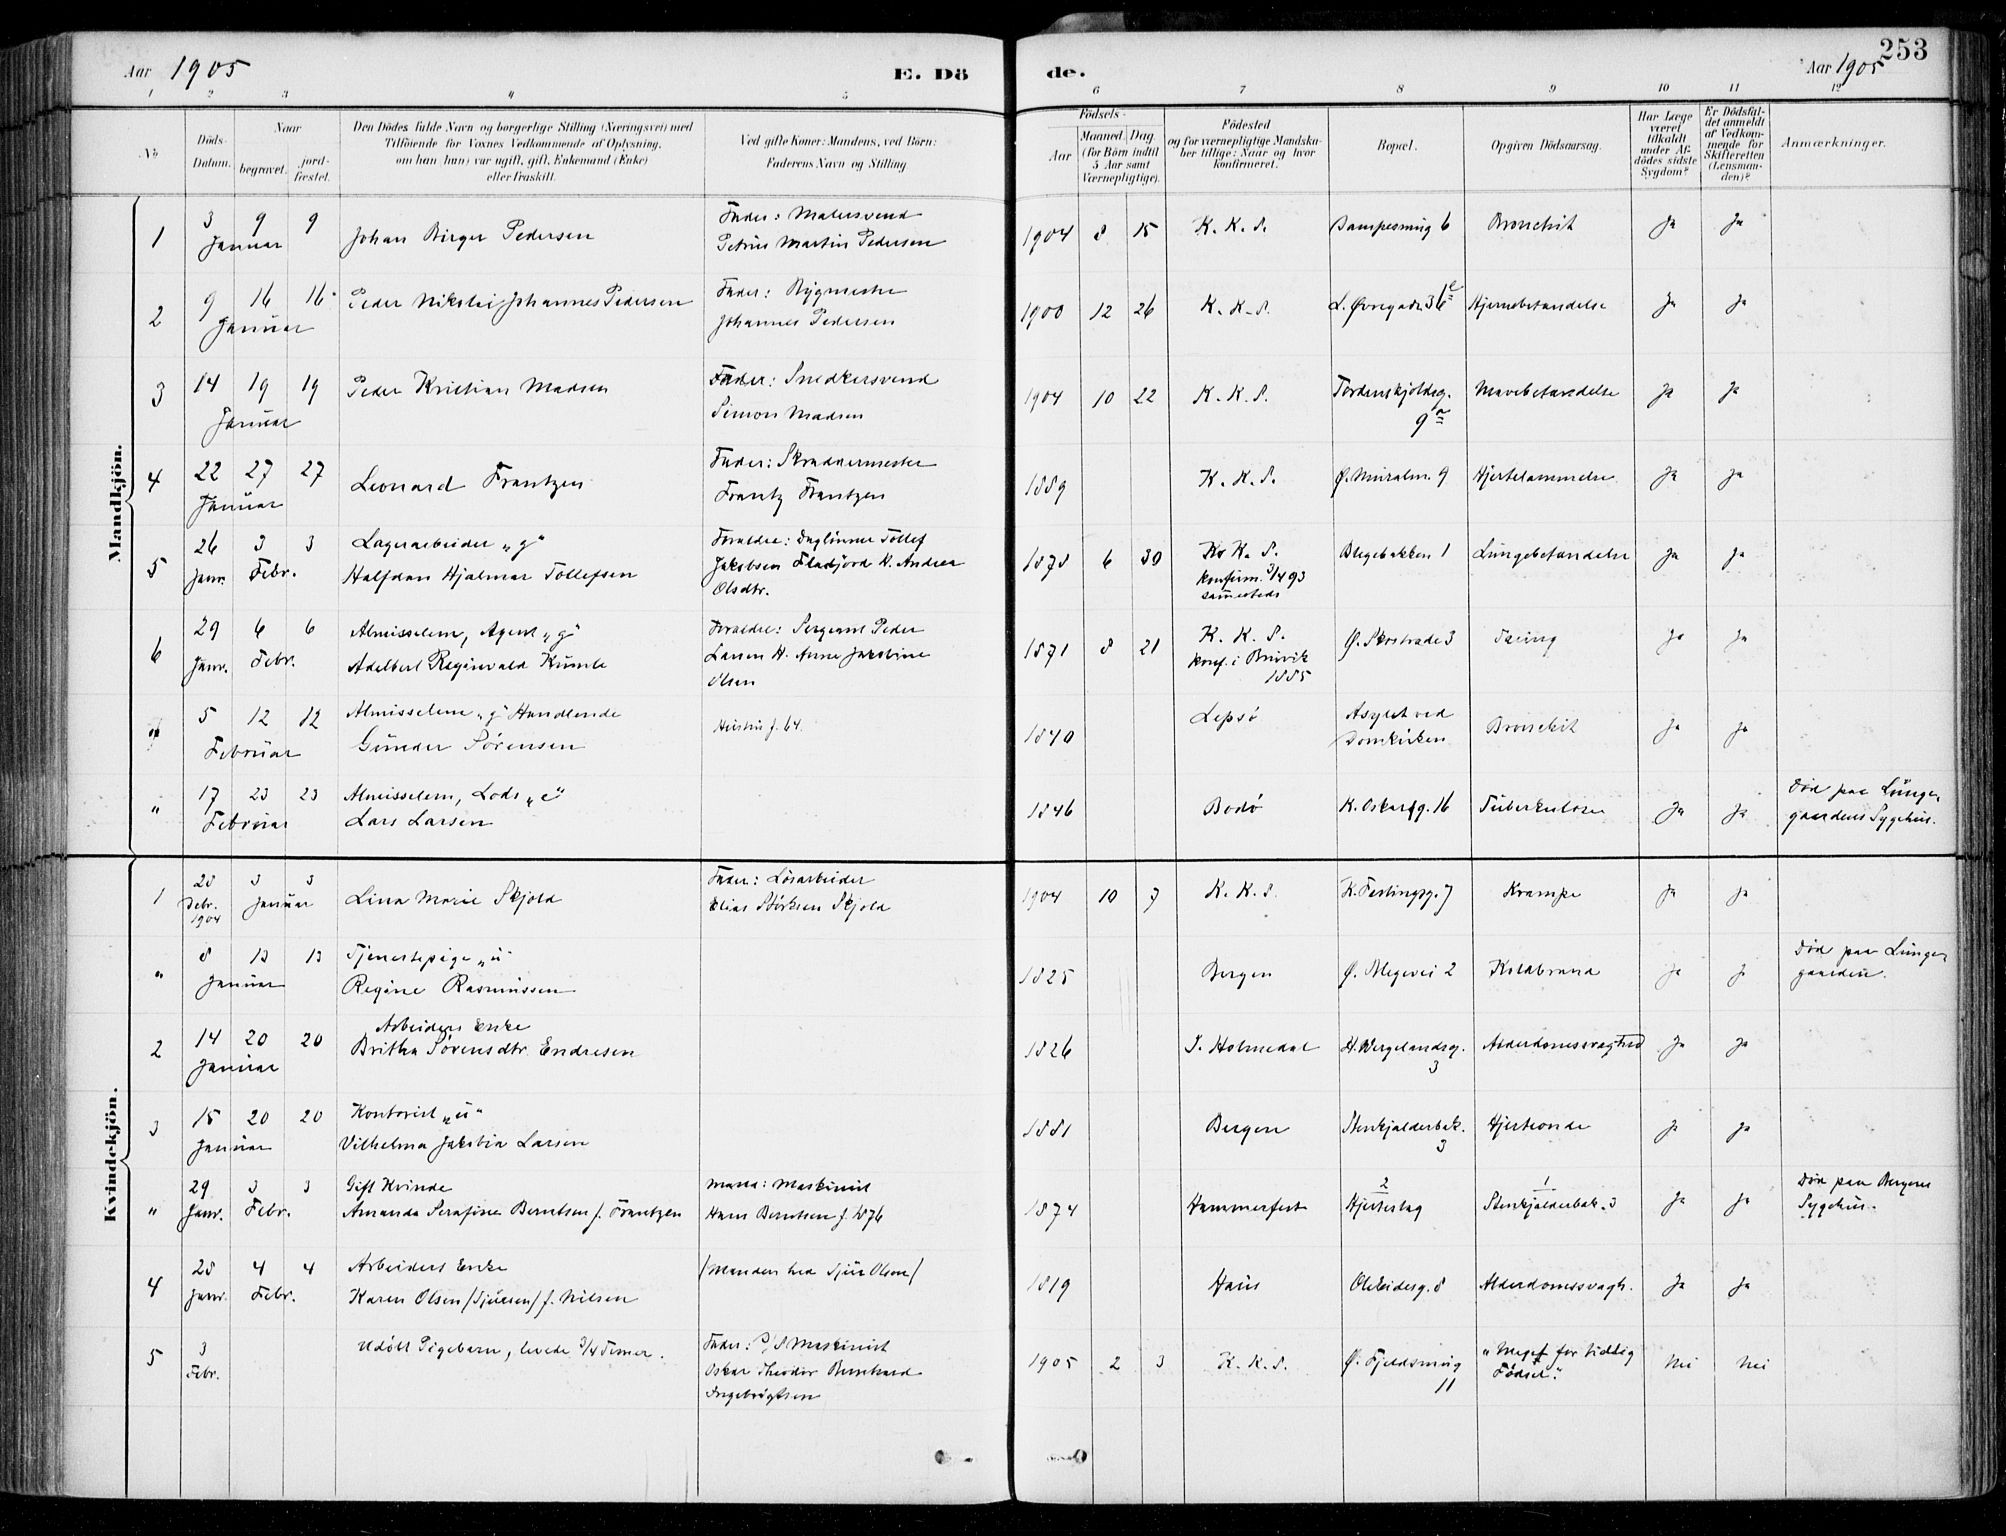 Aar 1905
E. Dö
de.
Aar 1905
253
1 2 3 4 5 6 7 8 9 10 11 12
No
Döds-
Datum.
Naar
begravet.
jord-
fæstet.
Den Dödes fulde Navn og borgerlige Stilling (Næringsvei) med
Tilföiende for Voxnes Vedkommende af Oplysning,
om han (hun) var ugift, gift, Enkemand (Enke)
eller fraskilt.
Ved gifte Koner: Mandens, ved Börn:
Faderens Navn og Stilling
Födsels-
Aar
Maaned. Dag.
(for Börn indtil
5 Aar samt
Værnepligtige).
Födested
og for værnepligtige Mandska-
ber tillige: Naar og hvor
konfirmeret.
Bopæl.
Opgiven Dödsaarsag.
Har Læge
været
tilkaldt
under Af-
dödes sidste
Sygdom?
Er Dödsfal-
det anmeldt
af Vedkom-
mende for
Skifteretten
(Lensman-
den)?
Anmærkninger.
Mandkjön.
1
3 9 9
Januar
Johan Birger Pedersen
Fader: Malersvend
Petrus Martin Pedersen
1904 8 15 K. K. S. Dampesmug 6 Bronchit Ja Ja
2
9 16 16
Januar
Peder Nikolai Johannes Pedersen
Fader: Bygmester
Johannes Pedersen
1900 12 26 K. K. S. L. Øvregade 36 Hjernebetændelse Ja Ja
3
14 19 19
Januar
Peder Kristian Madsen
Fader: Snedkersvend
Simon Madsen
1904 10 22 K. K. S. Tordenskjoldsg.
9a Mavebetændelse Ja Ja
4
22 27 27
Januar
Leonard Frantzen
Fader: Skræddermester
Frantz Frantzen
1889 K. K. S. Ø. Muralm. 9 Hjertelammelse Ja Ja
5
26 3 3
Janr. Febr.
Lagerarbeider „g"
Halfdan Hjalmar Tollefsen
Forældre: Daglönner Tollef
Jakobsen Fladjord H. Andrea
Olsdtr.
1878 6 30 K. K. S.
konfirm. 3/4 93
sammesteds
Blegebakken 1 Lungebetændelse Ja Ja
6
29 6 6
Janr. Febr.
Almisselem, Agent „g"
Adelbert Reginvald Kumle
Forældre: Sergeant Peder
Larsen H. Anne Jakobine
Olsen
1871 8 21 K. K. S.
konf. i
1885
Ø. Skostræde 3 Tæring Ja Ja
5 12 12
Februar
Almisselem „g" Handlende
Gunder Sørensen
Hustru f. 64.
1840 Lepsö Asylet ved
Domkirken Bronchit Ja Ja
"
17 23 23
Februar
Almisselem, Lods „e"
Lars Larsen
1846 Bodö K. Oskarsg. 16 Tuberkulose Ja Ja
Död paa Lunge-
gaardens Sygehus.
Kvindekjön.
1
28 3 3
Debr.
1904
Januar
Lina Marie Skjold
Fader: Lösarbeider
Elias Störksen Skjold
1904 10 7 K. K. S. K. Festingsg. 7 Krampe Ja Ja
"
8 13 13
Januar
Tjenestepige „u"
Regine Rasmussen
1825 Bergen Ø. Blegevei 2 Koldbrand Ja Ja
Död paa Lunge-
gaarden.
2
14 20 20
Januar
Arbeiders Enke
Britha Sørensdtr. Endresen
1826 I. Holmedal H. Wergelandsg.
3
Alderdomssvaghed Ja Ja
3
15 20 20
Januar
Kontorist „u"
Vilhelma Jakobia Larsen
1881 Bergen Stenkjelderbak.
3
Hjertevonde Ja Ja
"
29 3 3
Janr. Febr.
Gift Kvinde
Amanda Serafine Berntsen f. Frantzen
Mand: Maskinist
Hans Berntsen f. 1876
1874 Hammerfest
2
Hjerteslag
1
Stenkjælderbak. 3 Ja Ja
Död paa Bergens
Sygehus.
4
28 4 4
Janr. Febr.
Arbeiders Enke
Karen Olsen (Sjursen) f. Nilsen
(Manden hed Sjur Olsen)
1819 Haus Ole Eidesg. 8 Alderdomssvagh. Ja Ja
5
3
Febr.
Udöbt Pigebarn, levede 3/4 Timer.
Fader: Maskinist
Oskar Theodor Bernhard
Ingebrigtsen
1905 2 3 K. K. S. Ø. Fjeldsmug
11
"Meget for tidlig
Fødsel". Nei Nei